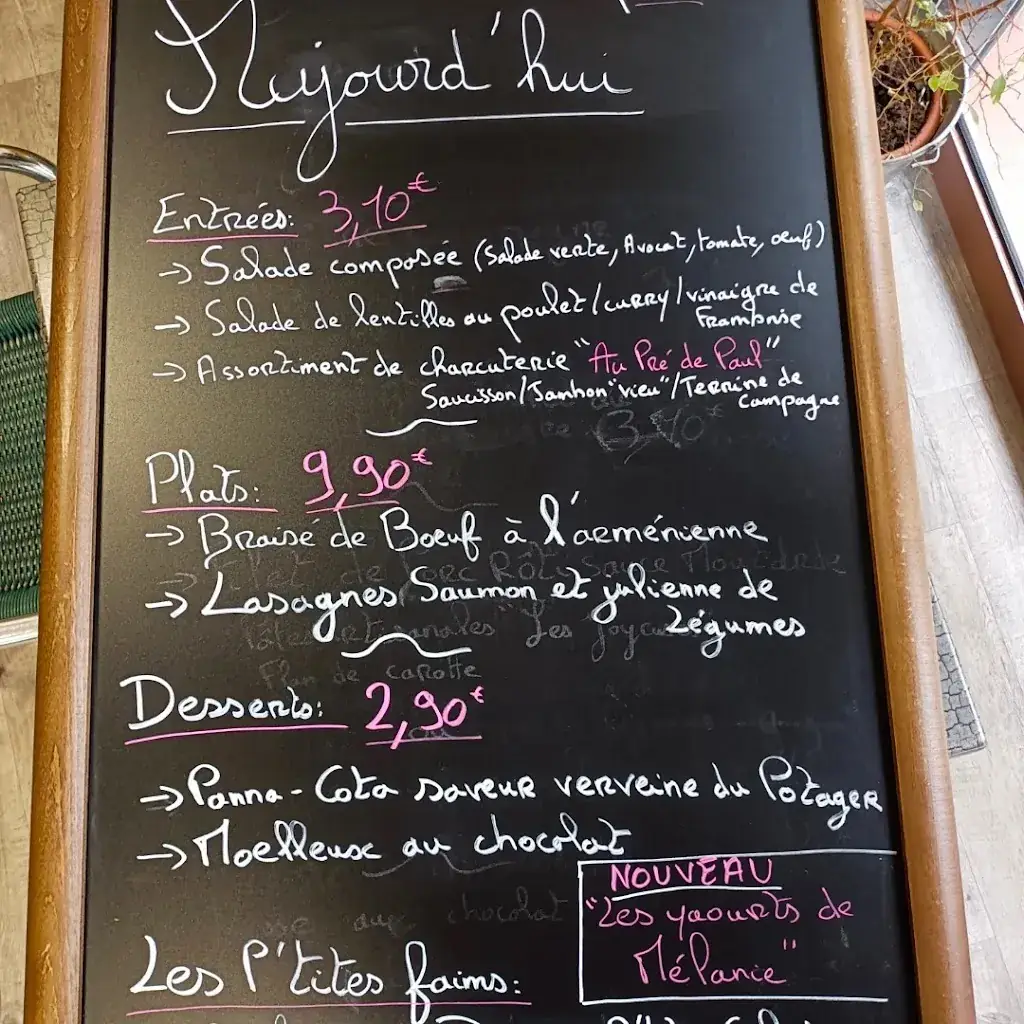 Aujourd'hui
Entrées: 3,10€
→ Salade composée (Salade verte, Avocat, tomate, œuf)
→ Salade de lentilles au poulet/curry/vinaigre de
Framboise
→ Assortiment de charcuterie "Au Pré de Paul"
Saucisson/Jambon "vieu"/Terrine de
Campagne
3,10€
Plats: 9,90€
→ Braisé de Boeuf à l'arménienne
→ Lasagnes Saumon et julienne de
Légumes
Flan de carotte
Desserts: 2,90€
→ Panna-Cota saveur verveine du Potager
→ Moelleux au chocolat
NOUVEAU
"Les yaourts de
Mélanie"
aux chocolat
Les P'tites faims: